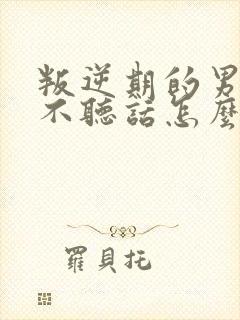 叛逆期的男
不聽話怎麼
羅貝托